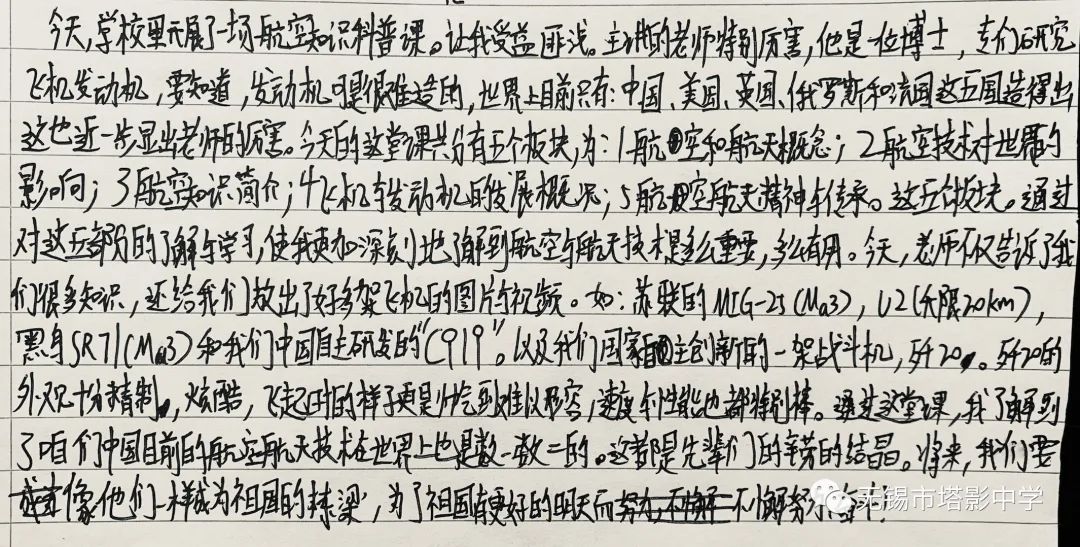 今天,学校里开展了一场航空知识科普课。让我受益匪浅。主讲的老师特别厉害,他是一位博士,专们研究
飞机发动机,要知道,发动机可是很难造的,世界上目前只有:中国、美国、英国、俄罗斯和法国这五国造得出
这也近一步显出老师的厉害。今天的这堂课共分有五个板块,为:1航空和航天概念;2航空技术对世界的
影响;3航空知识简介;4飞机与发动机的发展概况;5航空航天精神与传承。这五个板块。通过
对这五部分的了解与学习,使我更加深刻地了解到航空与航天技术是多么重要,多么有用。今天,老师不仅告诉了我
们很多知识,还给我们放出了好多架飞机的图片与视频。如:苏联的MIG-25(Ma3),U2(升限20km),
黑鸟SR71(Ma3)和我们中国自主研发的“C919”。以及我们国家自主创新的一架战斗机,歼20。歼20的
外观十分精制,炫酷,飞起时的样子更是帅气到难以形容,速度与性能也都特别棒。通过这堂课,我了解到
了咱们中国目前的航空航天技术在世界上也是数一数二的。这都是先辈们的辛劳的结晶。将来,我们要
像他们一样成为祖国的栋梁,为了祖国更好的明天而努力,不懈不懈努力
无锡市塔影中学